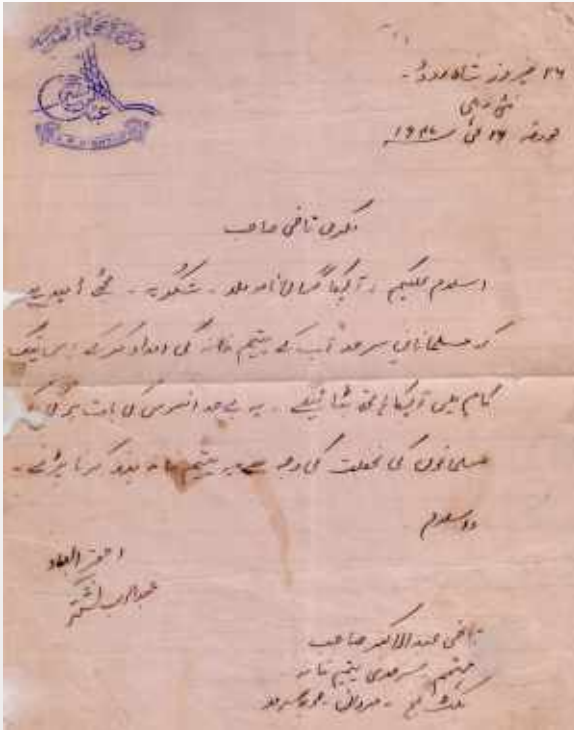 ۲۶ فیروز شاہ روڈ۔
نئی دہلی
مورخہ ۲۶ مئی ۱۹۴۷
مکرمی قاضی صاحب
اسلام علیکم ۔ آپکا گرامی نامہ ملا ۔ شکریہ ۔ مجھے امید ہے
کہ مسلمانان سرحد آپ کے یتیم خانہ کی امداد کر کے اس نیک
کام میں آپکا ہاتھ بٹائینگے ۔ یہ بے حد افسوس کی بات ہو گی کہ
مسلمانوں کی غفلت کی وجہ سے یتیم خانہ بند کرنا پڑے ۔
والسلام
احقر العباد
عبدالرب نشتر
قاضی عبدالاکبر صاحب
مہتمم سرحدی یتیم خانہ
گنج ۔ مردان ۔ صوبہ سرحد